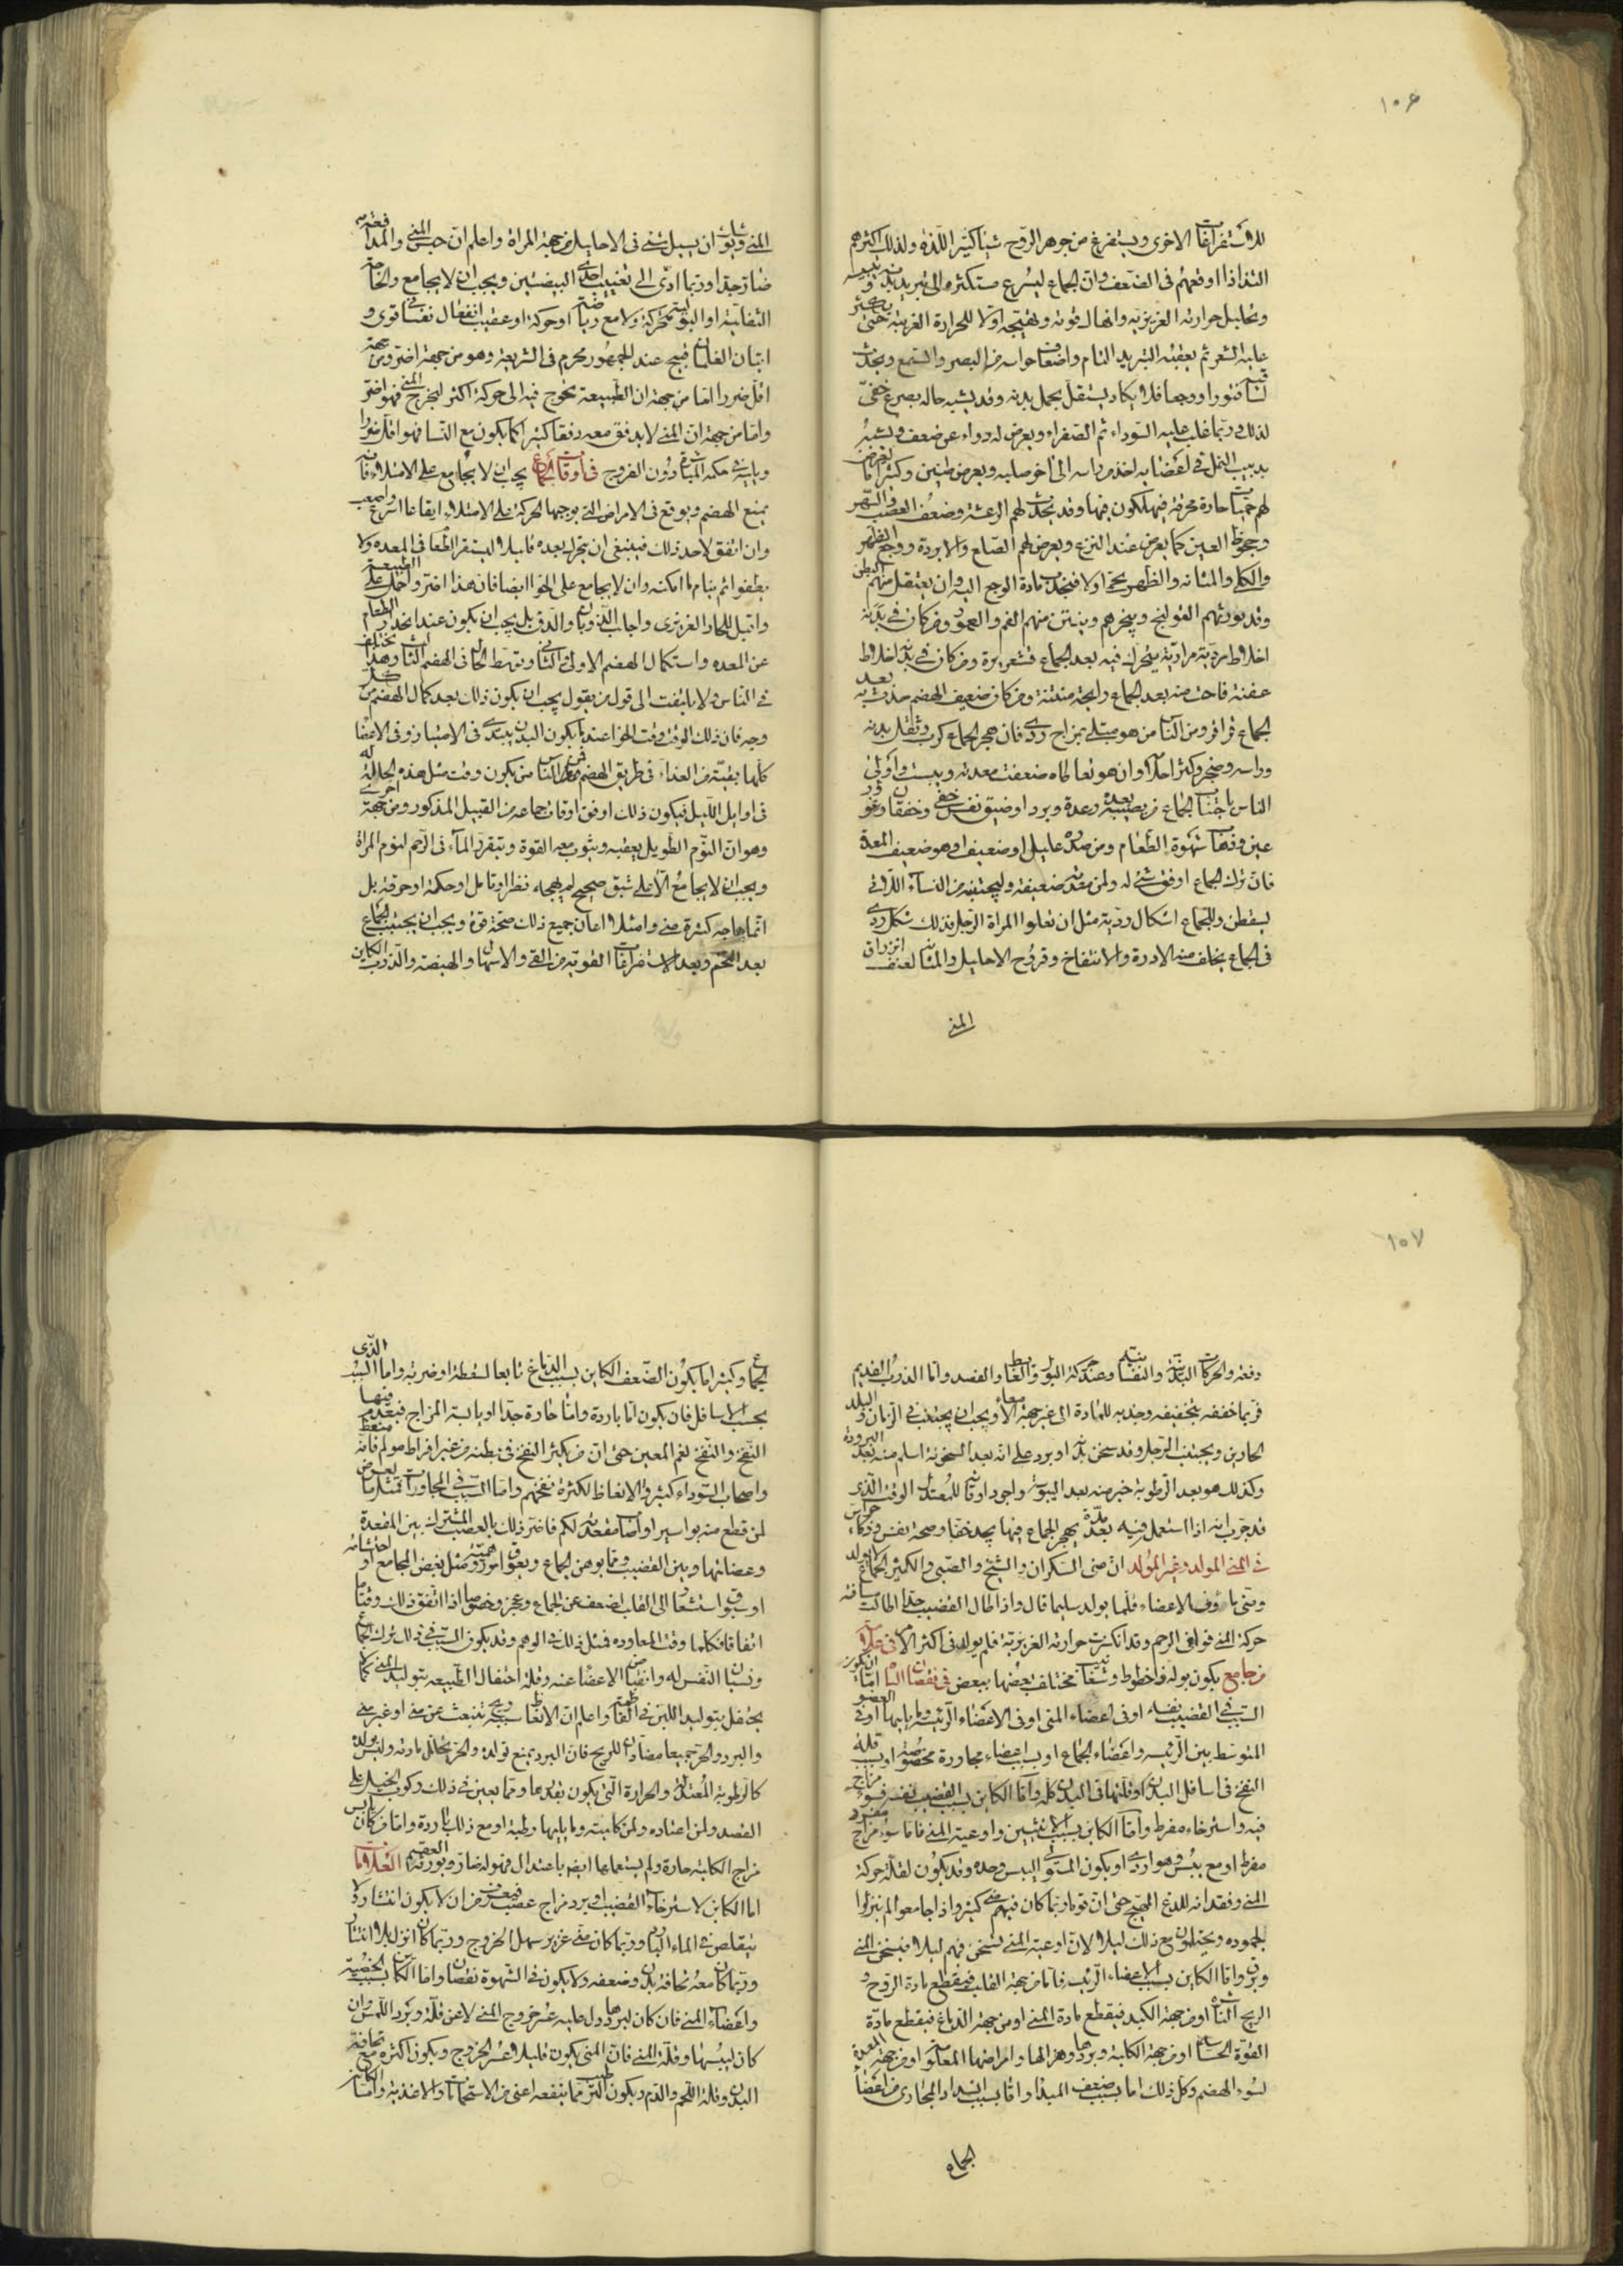 ١٠٦
للاستفراغات الاخرى ويستفرغ من جوهر الروح شيئا كثيرا للذة ولذلك اكثرهم
التذاذا اوقعهم فى الضعف وان الجماع ليسرع مستكثره الى تبريد بدنه
وتحليل حرارته الغريزية وانهاك قوته وتهييجه اولا للحرارة الغريبة حتى يكثر
عليه الشعر ثم يعقبه التبريد التام واضعاف حواسه من البصر والسمع ويحدث
فتورا ووجعا فلا يكاد يستقل بحمل بدنه وقد يشبه حاله بصرع خفى
لذلك وربما غلب عليه السوداء ثم الصفراء ويعرض له دوار عن ضعف ويشبه
بدبيب النمل فى اعضايه اخذ من راسه الى اخر صلبه ويعرض طنين وكثيرا ما يعرض
لهم حميات حادة محرقة فيهلكون فيها وقد يحدث لهم الرعشة وضعف العصب والسهر
وجحوظ العين كما يعرض عند النزع ويعرض لهم الصلع والابردة ووجع الظهر
والكلى والمثانه والظهر يحمى اولا فيجذب مادة الوجع اليه وان يعتقل منهم البطن
وقد يورثهم القولنج ويبخرهم وينتن منهم الفم والعمور ومن كان فى بدنه
اخلاط ردية مرارية يتحرك فيه بعد الجماع قشعريرة ومن كان فى بدنه اخلاط
عفنة فاحت منه بعد الجماع رايحة منتنة ومن كان ضعيف الهضم حدث به بعد
الجماع قراقر ومن الناس من هو مبتلى بمزاج ردى فان هجر الجماع كرب وثقل بدنه
وراسه وضجر وكثر احتلامه وان هو تعاطاه ضعفت معدته ويبست واولى
الناس باجتناب الجماع من يصيبه بعده رعدة وبرد او ضيق نفس خفى وخفقان وغور
عين وذهاب شهوة الطعام ومن صدره عليل او ضعيف او هو ضعيف المعدة
فان ترك الجماع اوفق شئ له ولمن معدته ضعيفة وليجتنبه من النساء اللواتى
يسقطن وللجماع اشكال ردية مثل ان تعلو المراة الرجل فذلك شكل ردى
فى الجماع يخاف منه الادرة والانتفاخ وقروح الاحليل والمثانه لعنف انزراق
المنى
المنى ويوشك ان يسيل شئ فى الاحليل من جهة المراة واعلم ان حبس المنى والمدافعة
ضار جدا وربما ادى الى تغييب احدى البيضتين ويجب ان لا يجامع والحاجة
الثفلية او البولية متحركة ولا مع رياضة او حركة او عقيب انفعال نفسانى قوى و
اتيان الغلمان قبيح عند الجمهور محرم فى الشريعة وهو من جهة اضر ومن جهة
اقل ضررا اما من جهة ان الطبيعة تحوج فيه الى حركة اكثر ليخرج المنى فهو اضر
واما من جهة ان المنى لا يدفق معه دفقا كثيرا كما يكون مع النسا فهو اقل ضررا
ويليه فى حكمه المباشرة دون الفرج فى اوقات الجماع يجب ان لا يجامع على الامتلاء فانه
يمنع الهضم ويوقع فى الامراض التى يوجبها الحركة على الامتلاء ايقاعا اسرع واصعب
وان اتفق لاحد ذلك فينبغى ان يتحرك بعده قليلا ليستقر الطعام فى المعده ولا
يطفو ثم ينام ما امكنه وان لا يجامع على الخوا ايضا فان هذا اضر واحمل على الطبيعة
واقتل للحار الغريزى واجلب للذوبان والدق بل يجب ان يكون عند انحدار الطعام
عن المعده واستكمال الهضم الاول والثانى وتوسط الحال فى الهضم الثالث وهذا يختلف
فى الناس ولا يلتفت الى قول من يقول يجب ان يكون ذلك بعد كمال الهضم من كل
وجه فان ذلك الوقت وقت الخوا عندما يكون البدن يبتدى فى الامتياز وفى الاعضا
كلها بقية من الغذاء فى طريق الهضم فمن الناس من يكون وقت مثل هذه الحالة له
فى اوايل الليل فيكون ذلك اوفق اوقات جماعه من القبيل المذكور ومن جهة اخرى
وهو ان النوم الطويل يعقبه ويثوب معه القوة ويتقرر الماء فى الرحم لنوم المراة
ويجب ان لا يجامع الا على شبق صحيح لم يهيجه نظر او تامل او حكة او حرقة بل
انما هاجه كثرة منى وامتلاء اعان جميع ذلك صحة قوة ويجب ان يجتنب الجماع
بعد التخم وبعد الاستفراغات القوية من القئ والاسهال والهيضة والذرب الكاين
١٠٧
دفعة والحركات البدنية والنفسانية وعند حركة البول والغايط والفصد واما الذرب القديم
فربما خففه بتجفيفه وجذبه للمادة الى غير جهة الامعاء ويجب ان يجتنب فى الزمان والبلد
الحارين ويجتنب الرجل وقد سخن بدنه او برد على انه بعد السخونة اسلم منه بعد البرودة
وكذلك هو بعد الرطوبة خير منه بعد اليبوسة واجود اوقاته للمعتدل الوقت الذى
قد جرب انه اذا استعمل فيه بعد مدة يهجر الجماع فيها يجد خفا وصحة نفس وذكاء حواس
فى المنى المولد وغير المولد ان منى السكران والشيخ والصبى والكثير الجماع لا يولد
ومنى ماووف الاعضاء قلما يولد سليما قال واذا طال القضيب جدا طالت مسافة
حركة المنى فوافى الرحم وقد انكسرت حرارته الغريزية فلم يولد فى اكثر الامر فى علامات
من جامع يكون بوله ذا خطوط وشعب تختلف بعضها ببعض فى نقصان الباه اما ان يكون
السبب فى القضيب نفسه او فى اعضاء المنى او فى الاعضاء الرئيسة وما يليها او فى العضو
المتوسط بين الرئيسه واعضاء الجماع او بسبب اعضاء مجاورة مخصوصة او بسبب قلة
النفخ فى اسافل البدن او قلتها فى البدن كله واما الكاين بسبب القضيب نفسه فسوء مزاج
فيه واسترخاء مفرط واما الكاين بسبب الانثيين واوعية المنى فاما سوء مزاج مفرد
مفرط او مع يبس وهو اردى او يكون المستولى اليبس وحده وقد يكون لقلة حركة
المنى وفقدانه للدغ المهيج حتى ان قوما ربما كان فيهم منى كثير واذا جامعوا لم ينزلوا
لجموده ويحتلمون مع ذلك ليلا لان اوعية المنى تسخن فيهم ليلا فيسخن المنى
ويرق واما الكاين بسبب الاعضاء الرئيسة فاما من جهة القلب فينقطع مادة الروح و
الريح الناشرة او من جهة الكبد فينقطع مادة المنى او من جهة الدماغ فينقطع مادة
القوة الحساسة او من جهة الكلية وبردها وهزالها وامراضها المعلومة او من جهة المعدة
لسوء الهضم وكل ذلك اما بسبب ضعف المبدا واما بسبب انسداد المجارى من اعضا
الجماع
الجماع وكثيرا ما يكون الضعف الكاين بسبب الدماغ تابعا لسقطة او ضربة واما السبب الذى
بحسب الاسافل فان يكون اما باردة واما حارة جدا او يابسة المزاج فيعدم فيها
النفخ والنفخ نعم المعين حتى ان من يكثر النفخ فى بطنه من غير افراط مولم فانه ينعظ
واصحاب السوداء كثيرو الانعاظ لكثرة نفخهم واما السبب فى المجاورات فمثل ما يعرض
لمن قطع منه بواسير او اصاب مقعدته الم فاضر ذلك بالعصب المشترك بين المقعدة
وعضلتها وبين القضيب ومما يوهن الجماع ويعوق امور وهمية مثل بغض المجامع او احتشامه
او سبوق استشعار الى القلب بضعف عن الجماع وعجز وخصوصا اذا اتفق ذلك وقتا ما
اتفاقا فكلما وقت المعاوده فمثل ذلك فى الوهم وقد يكون السبب فى ذلك ترك الجماع
ونسيان النفس له وانقباض الاعضاء عنه وقلة احتفال الطبيعه بتوليد المنى كما لا
يحتفل بتوليد اللبن فى الفاطمة واعلم ان الانعاظ سببه ريح تنبعث عن منى او غير منى
والبرد والحر جميعا مضادان للريح فان البرد يمنع تولده والحر يحلل مادته وليس يولده
كالرطوبة المعتدلة والحرارة التى يكون بقدرها ومما يعين فى ذلك ركوب الخيل على
القصد ولمن اعتاده ولمن كليته وما يليها رطبة او مع ذلك باردة واما من كان يابس
مزاج الكلية حارة ولم يستعملها ايضا باعتدال فهو له ضار ويورثه العقم العلامات
اما الكاين لاسترخاء القضيب او برد مزاج عصبه فيعرف من ان لا يكون انتشار ولا
يتقلص فى الماء البارد وربما كان منى غزير سهل الخروج وربما كان انزال بلا انتشار
وربما كان معه نحافة بدن وضعفه ولا يكون فى الشهوة نقصان واما الكاين بسبب الخصية
واعضاء المنى فان كان لبردها دل عليه عسر خروج المنى لا عن قلته وبرد اللمس وان
كان ليبسها وقلة المنى فان المنى يكون قليلا وعسر الخروج ويكون اكثره مع نحافة
البدن وقلة اللحم والدم ويكون الترطيب مما ينفعه اعنى من الاستحمامات والاغذية واما الكاين